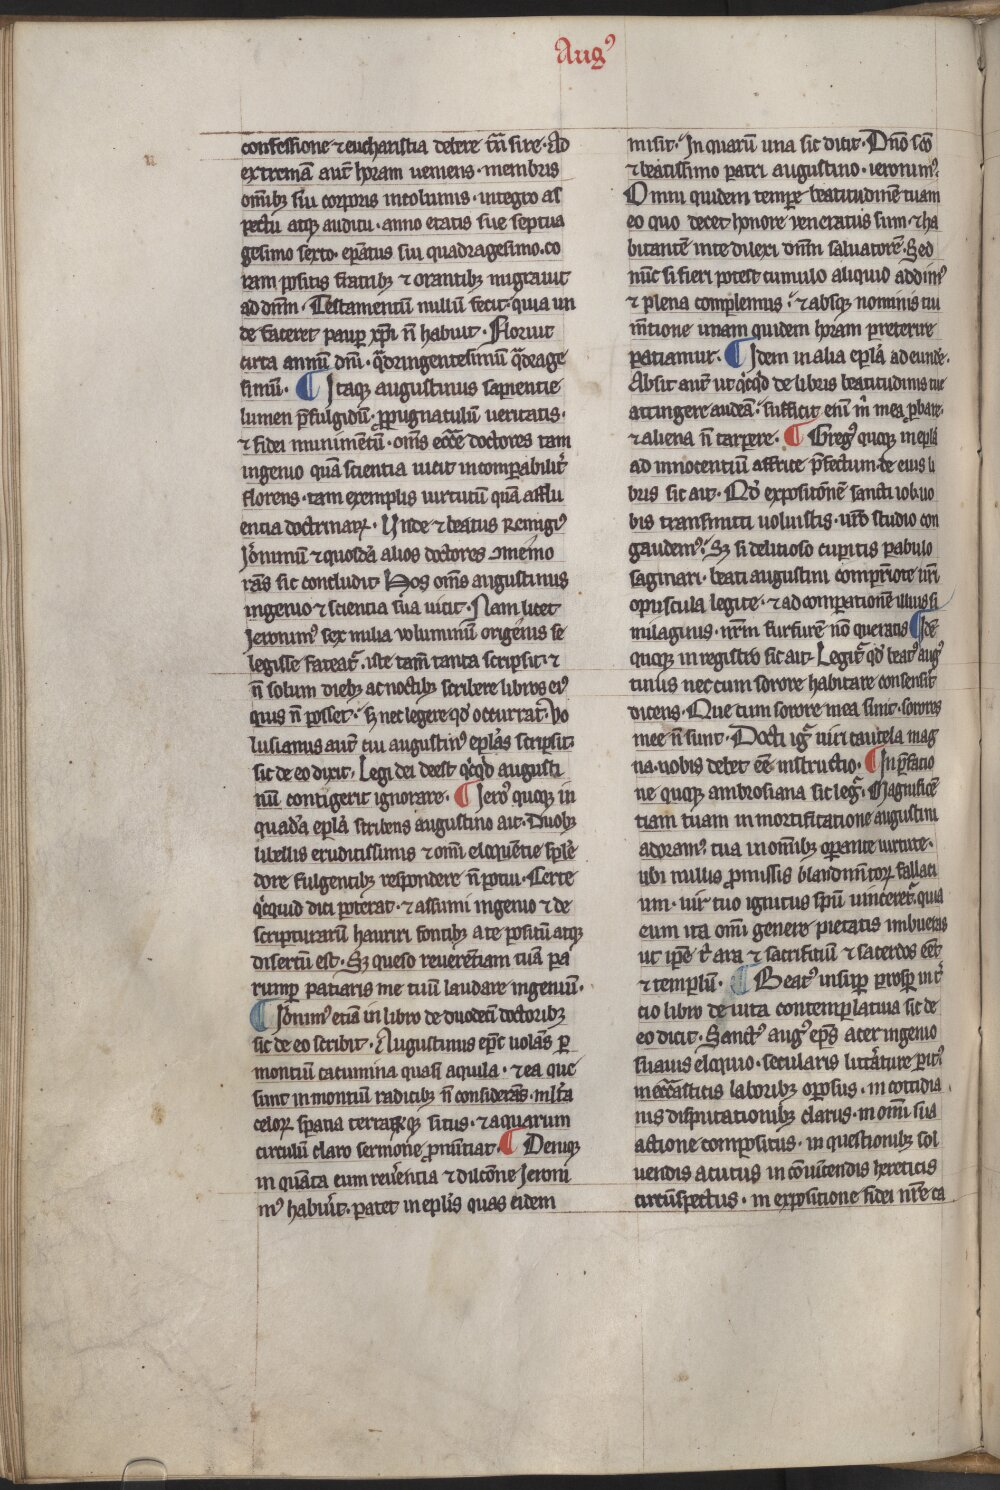 Augꝰ
confessione ⁊ eucharistia debere tm̄ sire · Ad
extremā aut̄ horam ueniens · membris
om̄ibꝫ sui corporis incolumis · integro as
pectu atqꝫ auditu · anno etatis sue septua
gesimo sexto · ep̄atus sui quadragesimo · co
ram positis fratribꝫ ⁊ orantibꝫ migrauit
ad dn̄m · Testamentū nullū fecit · quia un
de faceret paup̲ xp̄i n̄ habuit · Floruit
circa annū dn̄i · q̄dringentesimū q̄drage
simū · ¶ Itaqꝫ augustinus sapientie
lumen p̄fulgidū · ꝓpugnaculū ueritatis ·
⁊ fidei munimentū · om̄s ecc̄e doctores tam
ingenio quā scientia uicit incomparabilit̄
florens · tam exemplis uirtutū quā afflu
entia doctrinaꝝ · Unde ⁊ beatus Remigiꝰ
Jeronimū ⁊ quosdā alios doctores ꝯmemo
rās sic concludit Hos om̄s augustinus
ingenio ⁊ scientia sua uicit · Nam licet
Jeronimꝰ sex milia voluminū origenis se
legisse fateat᷑ · iste tam̄ tanta scripsit · ⁊
n̄ solum diebꝫ ac noctibꝫ scribere libros eiꝰ
quis n̄ posset · sꝫ nec legere qd̓ occurrat · Vo
lusianus aut̄ cui augustinꝰ ep̄lās scripsit ·
sic de eo dixit · Legi dei deest qͥcqͥd augusti
nū contigerit ignorare · ¶ Jeroꝰ quoqꝫ in
quadā ep̄lā scribens augustino ait · Duobꝫ
libellis eruditissimis ⁊ om̄i eloquentie sple
dore fulgentibꝫ respondere n̄ potui · Certe
qͥcquid dici poterat · ⁊ assumi ingenio ⁊ de
scripturarū hauriri fontibꝫ a te positū atqꝫ
disertū est · Sꝫ queso reuerētiam tuā pa
rump̲ patiaris me tuū laudare ingeniū ·
¶ Jeronimꝰ etiā in libro de duodeci doctoribꝫ
sic de eo scribit · Augustinus ep̄c uolās p̲
montiū cacumina quasi aquila · ⁊ ea que
sunt in montiū radicibꝫ n̄ considerās · ml̄ta
celoꝝ spatia terraꝝqꝫ situs · ⁊ aquarum
circulū claro sermone ꝓnūtiat · ¶ Deniqꝫ
in quāta eum reuerentia ⁊ dilectione Jeroni
mꝰ habuīt · patet in ep̄lis quas eidem
misit · In quarū una sic dicit · Dn̄o sc̄o
⁊ beatissimo patri augustino · ieronimꝰ
Omni quidem tempe beatitudinē tuam
eo quo decet honore veneratus sum · ⁊ ha
bitantē in te dilexi dn̄m saluatorē · Sed
nūc si fieri potest cumulo aliquid addimꝰ
⁊ plena complemus · ⁊ absqꝫ nominis tui
m̄tione unam quidem horam preterire
patiamur · ¶ Idem in alia ep̄lā ad eundē ·
Absit aut̄ ut qͥcqͥd de libris beatitudinis tue
attingere audeā · sufficit eni m̄ mea p̲bare ·
⁊ aliena n̄ carpere · ¶ Gregꝰ quoqꝫ in ep̄lā
ad innocentiū affrice p̄fectum de eius li
bris sic ait · Qd̓ expositōnē sancti iob uo
bis transmitti uoluistis · ur̄o studio con
gaudemꝰ · Sꝫ si delicioso cupitis pabulo
saginari · beati augustini compriote uri
opuscula legite · ⁊ ad comparationē illius si
milaginis · nr̄m furfurē nō queratis ¶ Idē
quoqꝫ in registro sic ait · Legit᷑ qd̓ beatꝰ augꝰ
tinus nec cum sorore habitare consensit
dicens · Que cum sorore mea sunt · sorores
mee n̄ sunt · Docti ig᷑ uiri cautela mag
na · uobis debet ēe instructio · ¶ In p̄facio
ne quoqꝫ ambrosiana sic leg᷑ · Magnificē
tiam tuam in mortificatione augustini
adoramꝰ · tua in om̄ibꝫ operante uirtute ·
ubi nullis ꝓmissis blandim̄toꝝ fallaci
um · uir tuo ignitus spū uinceret᷑ · quia
eum ita om̄i genere pietatis imbueras
ut ip̄e t̄ ara ⁊ sacrificiū ⁊ sacerdos eēt
⁊ templū · ¶ Beatꝰ insup̲ prosp̲ in t̄
cio libro de uita contemplatiua sic de
eo dicit · Sanctꝰ augꝰ ep̄s acer ingenio
suauis eloquio · secularis litterature p̲itꝰ
in ecc̄asticis laboribꝫ op̲osus · in cottidia
nis disputationibꝫ clarus · in om̄i sua
actione compositus · in questionibꝫ sol
uendis acutus in cōuincendis hereticis
circūspectus · in expositione fidei nr̄e ca